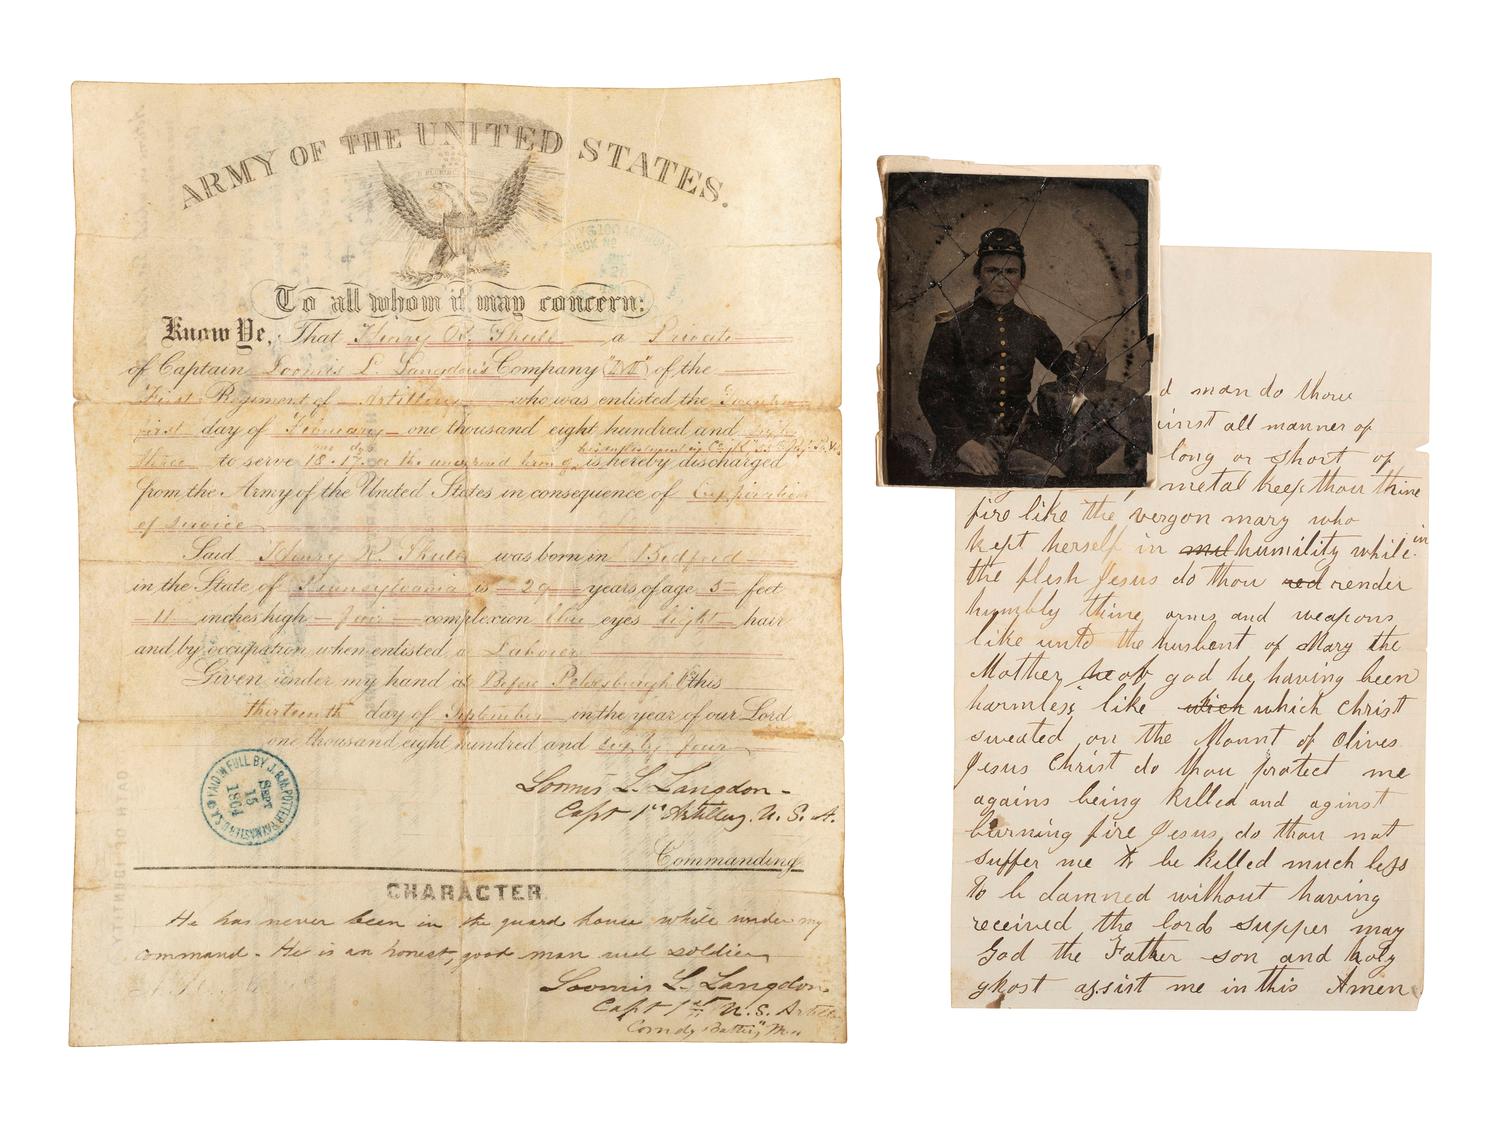 ARMY OF THE UNITED STATES.
To all whom it may concern:
Know Ye, That Henry R. a Private
of Captain Loomis L. Langdon's Company ("M") of the
First Regiment of Artillery who was enlisted the Twenty
first day of February one thousand eight hundred and sixty
three to serve is hereby discharged
from the Army of the United States in consequence of Expiration
of service
Said Henry R. was born in Bedford
in the State of Pennsylvania is 29 years of age 5 feet
11 inches high fair complexion blue eyes light hair
and by occupation when enlisted a Laborer
Given under my hand at Before Petersburgh this
thirteenth day of September in the year of our Lord
one thousand eight hundred and sixty four
PAID IN FULL BY J. B. M. POTTER PAYMASTER U.S.A.
SEPT
15
1864
Loomis L. Langdon
Capt 1st Artillery. U. S. A.
Commanding
CHARACTER.
He has never been in the guard house while under my
command. He is an honest, good man and soldier
Loomis L. Langdon
Capt 1st U.S. Artill
Comdg Battery "M"
d man do thou
ainst all manner of
long or short of
metal keep thou thine
fire like the vergon mary who
kept herself in humility while in
the flesh Jesus do thou red render
humbly thine arms and weapons
like unto the husbent of Mary the
Mother of god he having been
harmless like which which Christ
sweated on the Mount of Olives
Jesus Christ do thou protect me
agains being killed and aginst
burning fire Jesus do thou not
suffer me to be killed much less
to be damned without having
received the lords supper may
God the Father son and holy
ghost assist me in this Amen